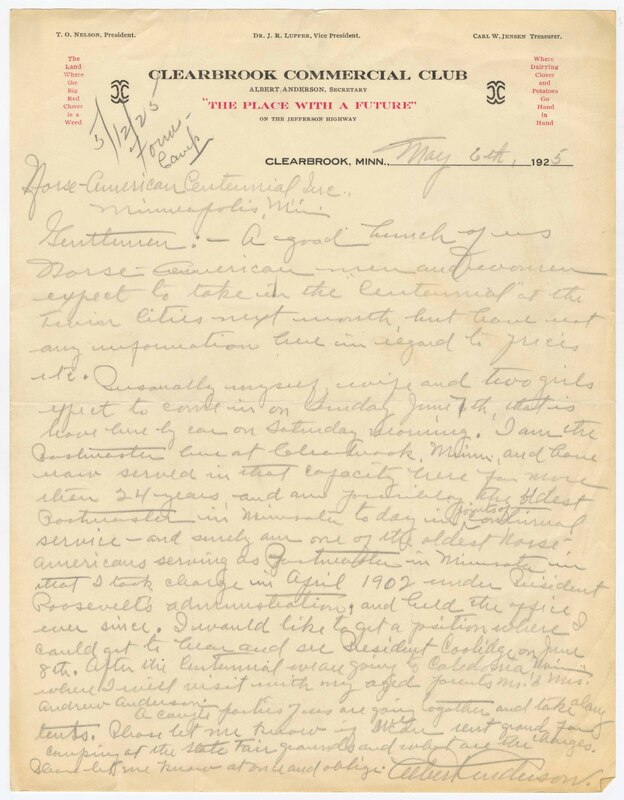 T. O. Nelson, President.
Dr. J. R. Lupfer, Vice President.
Carl W. Jensen Treasurer.
The
Land
Where
the
Big
Red
Clover
is a
Weed
Where
Dairying
Clover
and
Potatoes
Go
Hand
in
Hand
CLEARBROOK COMMERCIAL CLUB
ALBERT ANDERSON, SECRETARY
"THE PLACE WITH A FUTURE"
ON THE JEFFERSON HIGHWAY
5/12/25
Camp
CLEARBROOK, MINN., May 6th, 1925
Norse-American Centennial Inc.,
Minneapolis, Minn
Gentlemen:- A good bunch of us
Norse-American men and women
expect to take in the Centennial at the
Twin Cities next month, but have not
any information here in regard to prices
etc. Personally myself, wife and two girls
expect to come in on Sunday June 7th, that is
leave here by car on Saturday morning. I am the
Postmaster here at Clearbrook, Minn, and have
now served in that capacity here for more
than 24 years and am possibly the oldest
Postmaster in Minnesota today in points of continual
service - and surely am one of the oldest Norse-
Americans serving as Postmaster in Minnesota in
that I took charge in April 1902 under President
Roosevelts administration, and held the office
ever since. I would like to get a position where I
could get to hear and see President Coolidge on June
8th. After the Centennial we are going to Caledonia, Minn
where I will visit with my aged parents Mr. & Mrs.
Andrew Anderson.
A couple parties of us are going together and take along
tents. Please let me know if we can rent ground for
camping at the State Fair grounds and what are the charges.
Please let me know at once and oblige. Albert Anderson.